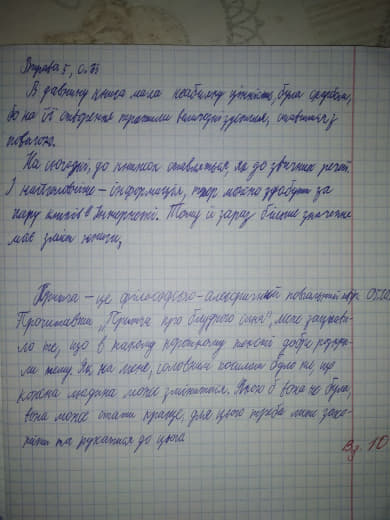 Вправа 5, с. 75
В давнину книга мала неабияку цінність, була
бо на її створення тратили величезні зусилля, ставились з
повагою.
На сьогодні, до книжок ставляться, як до звичних речей.
І найголовніше – інформація, тепер можна здобути за
пару кліків в Інтернеті. Тому й зараз більше значення
має зміст книги,
Притча – це філософсько-алегоричний повчальний твір. 05.10
Прочитавши „Притчу про блудного сина", мене зацікави-
ло те, що в такому короткому тексті добре розкри-
ли тему. Як на мене, головним посилом було те, що
кожна людина може змінитися. Якою б вона не була,
вона може стати краще, для цього треба лише захо-
тіти та рухатися до цього
Вз. 10